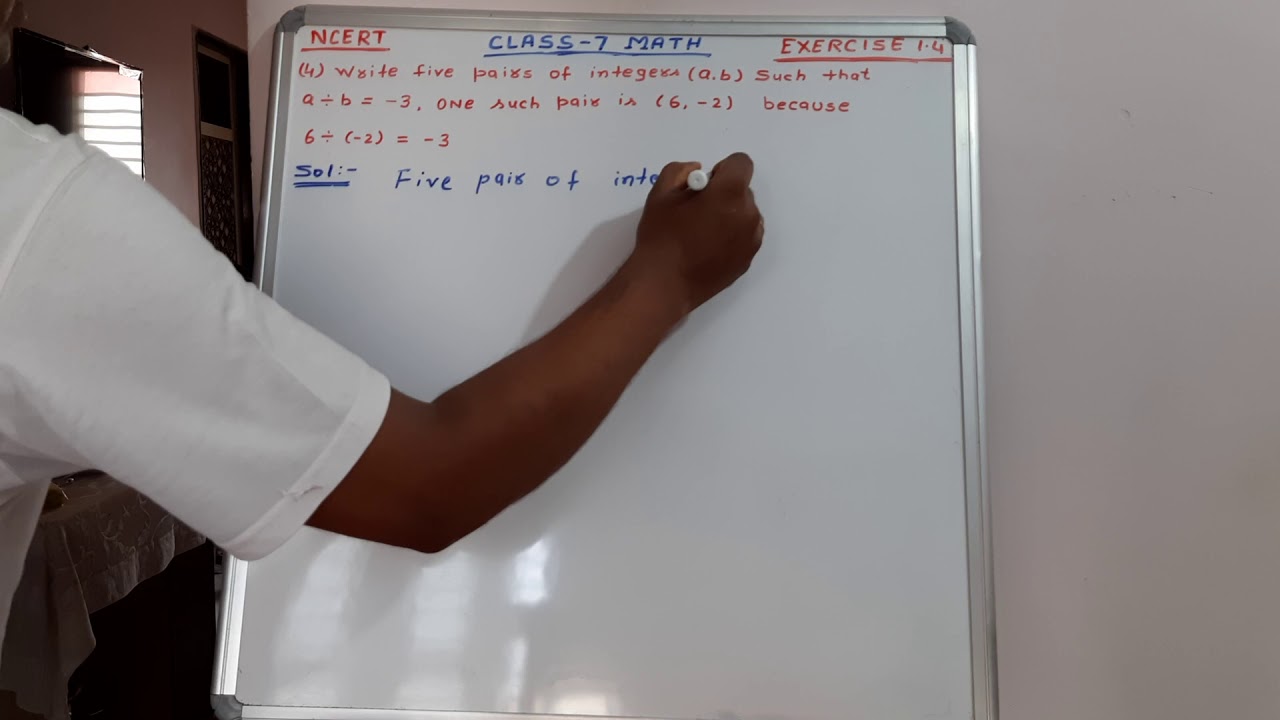 NCERT CLASS-7 MATH EXERCISE 1.4
(4) Write five pairs of integers (a.b) Such that
a ÷ b = -3, one such pair is (6, -2) because
6 ÷ (-2) = -3
Sol:- Five pair of inte